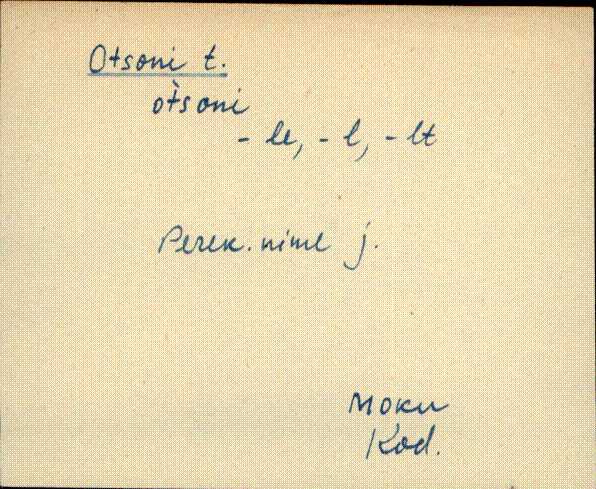 Otsoni t.
òtsoni
- le, - l, - lt
Perek. nime j.
Moku
Kod.